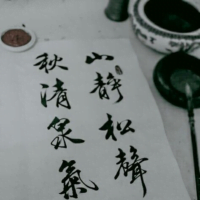 山静松聲
秋清泉氣